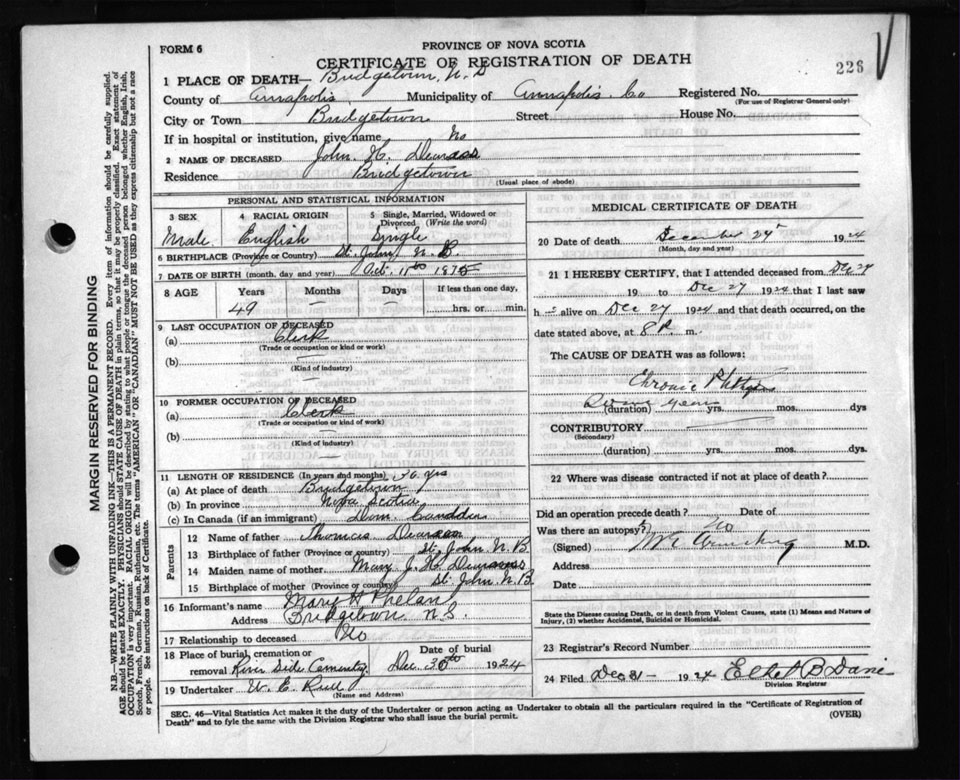 FORM 6
PROVINCE OF NOVA SCOTIA
CERTIFICATE OF REGISTRATION OF DEATH
226
1 PLACE OF DEATH— Bridgetown, N.S
County of Annapolis Municipality of Annapolis Co Registered No.
(For use of Registrar General only)
City or Town Bridgetown Street House No.
If in hospital or institution, give name No
2 NAME OF DECEASED John H.
Residence Bridgetown
(Usual place of abode)
PERSONAL AND STATISTICAL INFORMATION
3 SEX 4 RACIAL ORIGIN 5 Single, Married, Widowed or Divorced (Write the word)
Male English Single
6 BIRTHPLACE (Province or Country) St. John, N.B.
7 DATE OF BIRTH (month, day and year) Oct. 11th 1875
8 AGE Years Months Days If less than one day,
49 hrs. or min.
9 LAST OCCUPATION OF DECEASED
(a) Clerk
(Trade or occupation or kind or work)
(b)
(Kind of industry)
10 FORMER OCCUPATION OF DECEASED
(a) Clerk
(Trade or occupation or kind of work)
(b)
(Kind of industry)
11 LENGTH OF RESIDENCE (In years and months) 30 yrs
(a) At place of death Bridgetown
(b) In province Nova Scotia
(c) In Canada (if an immigrant) Dom.
Parents
12 Name of father Thomas
13 Birthplace of father (Province or country) St. John N.B.
14 Maiden name of mother Mary J.
15 Birthplace of mother (Province or country) St. John N.B.
16 Informant's name Mary H Phelan
Address Bridgetown N.S.
17 Relationship to deceased No
18 Place of burial, cremation or removal River Side Cemetery Date of burial Dec 30th 1924
19 Undertaker W. E.
(Name and Address)
MEDICAL CERTIFICATE OF DEATH
20 Date of death December 27th 1924
(Month, day and year)
21 I HEREBY CERTIFY, that I attended deceased from Dec
19 to Dec 27 1924 that I last saw
h alive on Dec 27 1924 and that death occurred, on the
date stated above, at 8 P. m.
The CAUSE OF DEATH was as follows:
Chronic
Some years
(duration) yrs. mos. dys
CONTRIBUTORY
(Secondary)
(duration) yrs. mos. dys.
22 Where was disease contracted if not at place of death?
Did an operation precede death? Date of
Was there an autopsy? No
(Signed) M.D.
Address
Date
State the Disease causing Death, or in death from Violent Causes, state (1) Means and Nature of
Injury, (2) whether Accidental, Suicidal or Homicidal.
23 Registrar's Record Number
24 Filed Dec 31— 1924 Ethel B
Division Registrar
SEC. 46—Vital Statistics Act makes it the duty of the Undertaker or person acting as Undertaker to obtain all the particulars required in the "Certificate of Registration of
Death" and to fyle the same with the Division Registrar who shall issue the burial permit.
(OVER)
MARGIN RESERVED FOR BINDING
N.B.—WRITE PLAINLY WITH UNFADING INK—THIS IS A PERMANENT RECORD. Every item of information should be carefully supplied.
AGE should be stated EXACTLY. PHYSICIANS should STATE CAUSE OF DEATH in plain terms, so that it may be properly classified. Exact statement of
OCCUPATION is very important. RACIAL ORIGIN will be described by stating to what people or tongue the deceased person belonged whether English, Irish,
Scotch, French, German, Russian, Ruthenian, etc. The terms "AMERICAN" OR "CANADIAN" MUST NOT BE USED as they express citizenship but not a race
or people. See instructions on back of Certificate.